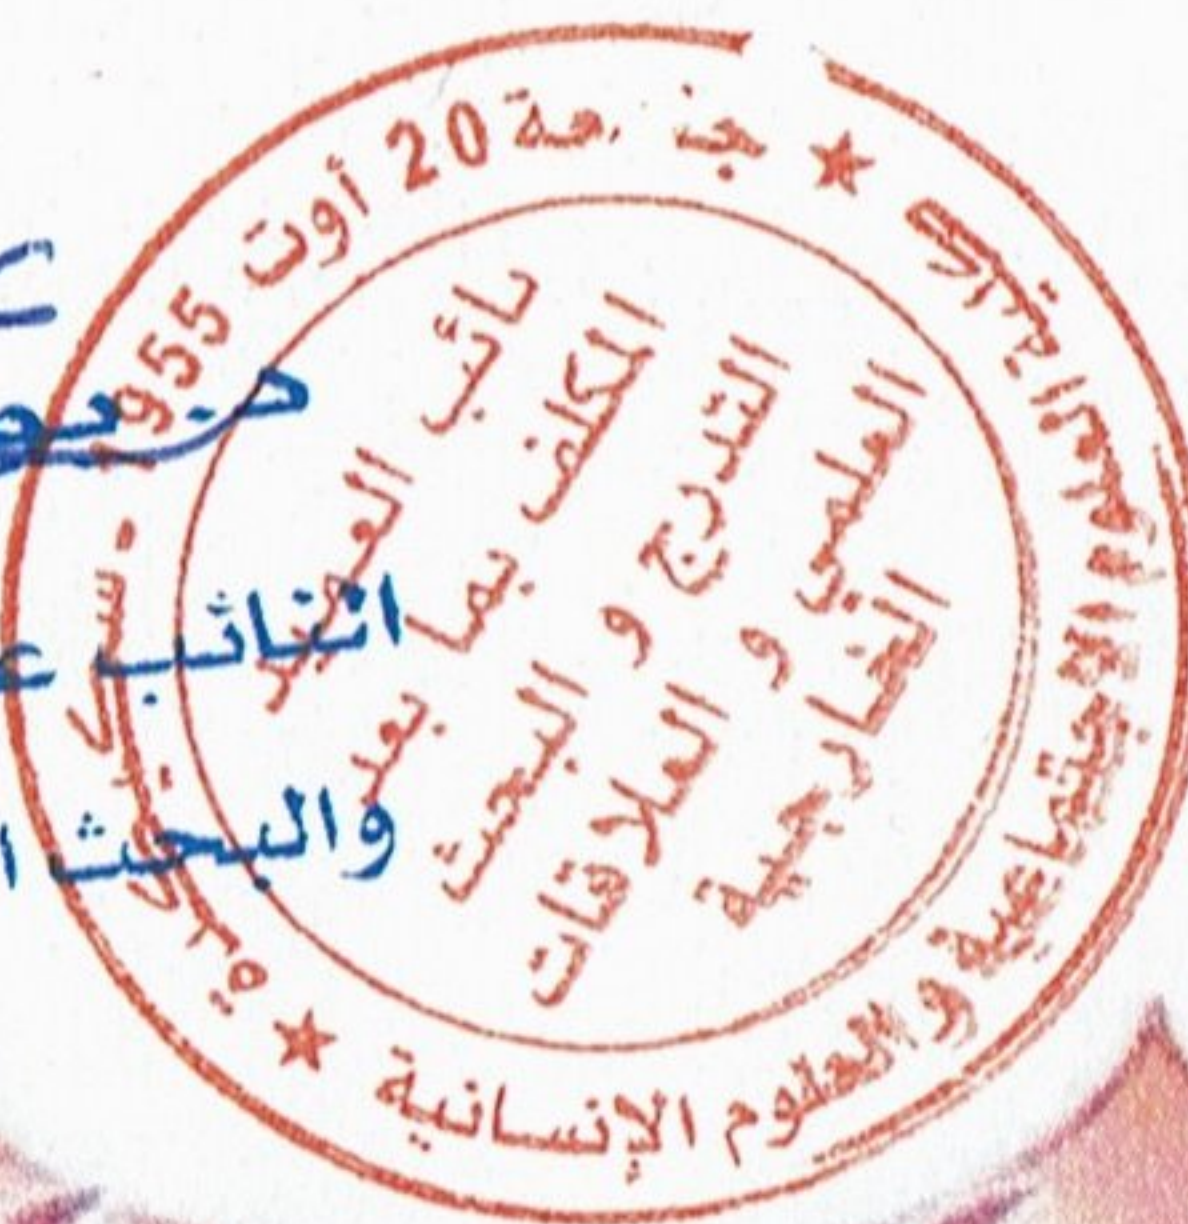 جامعة 20 أوت 1955 - سكيكدة
كلية العلوم الاجتماعية والعلوم الإنسانية
نائب العميد
المكلف بما بعد
التدرج و البحث
العلمي و العلاقات
الخارجية
النائب
والبحث